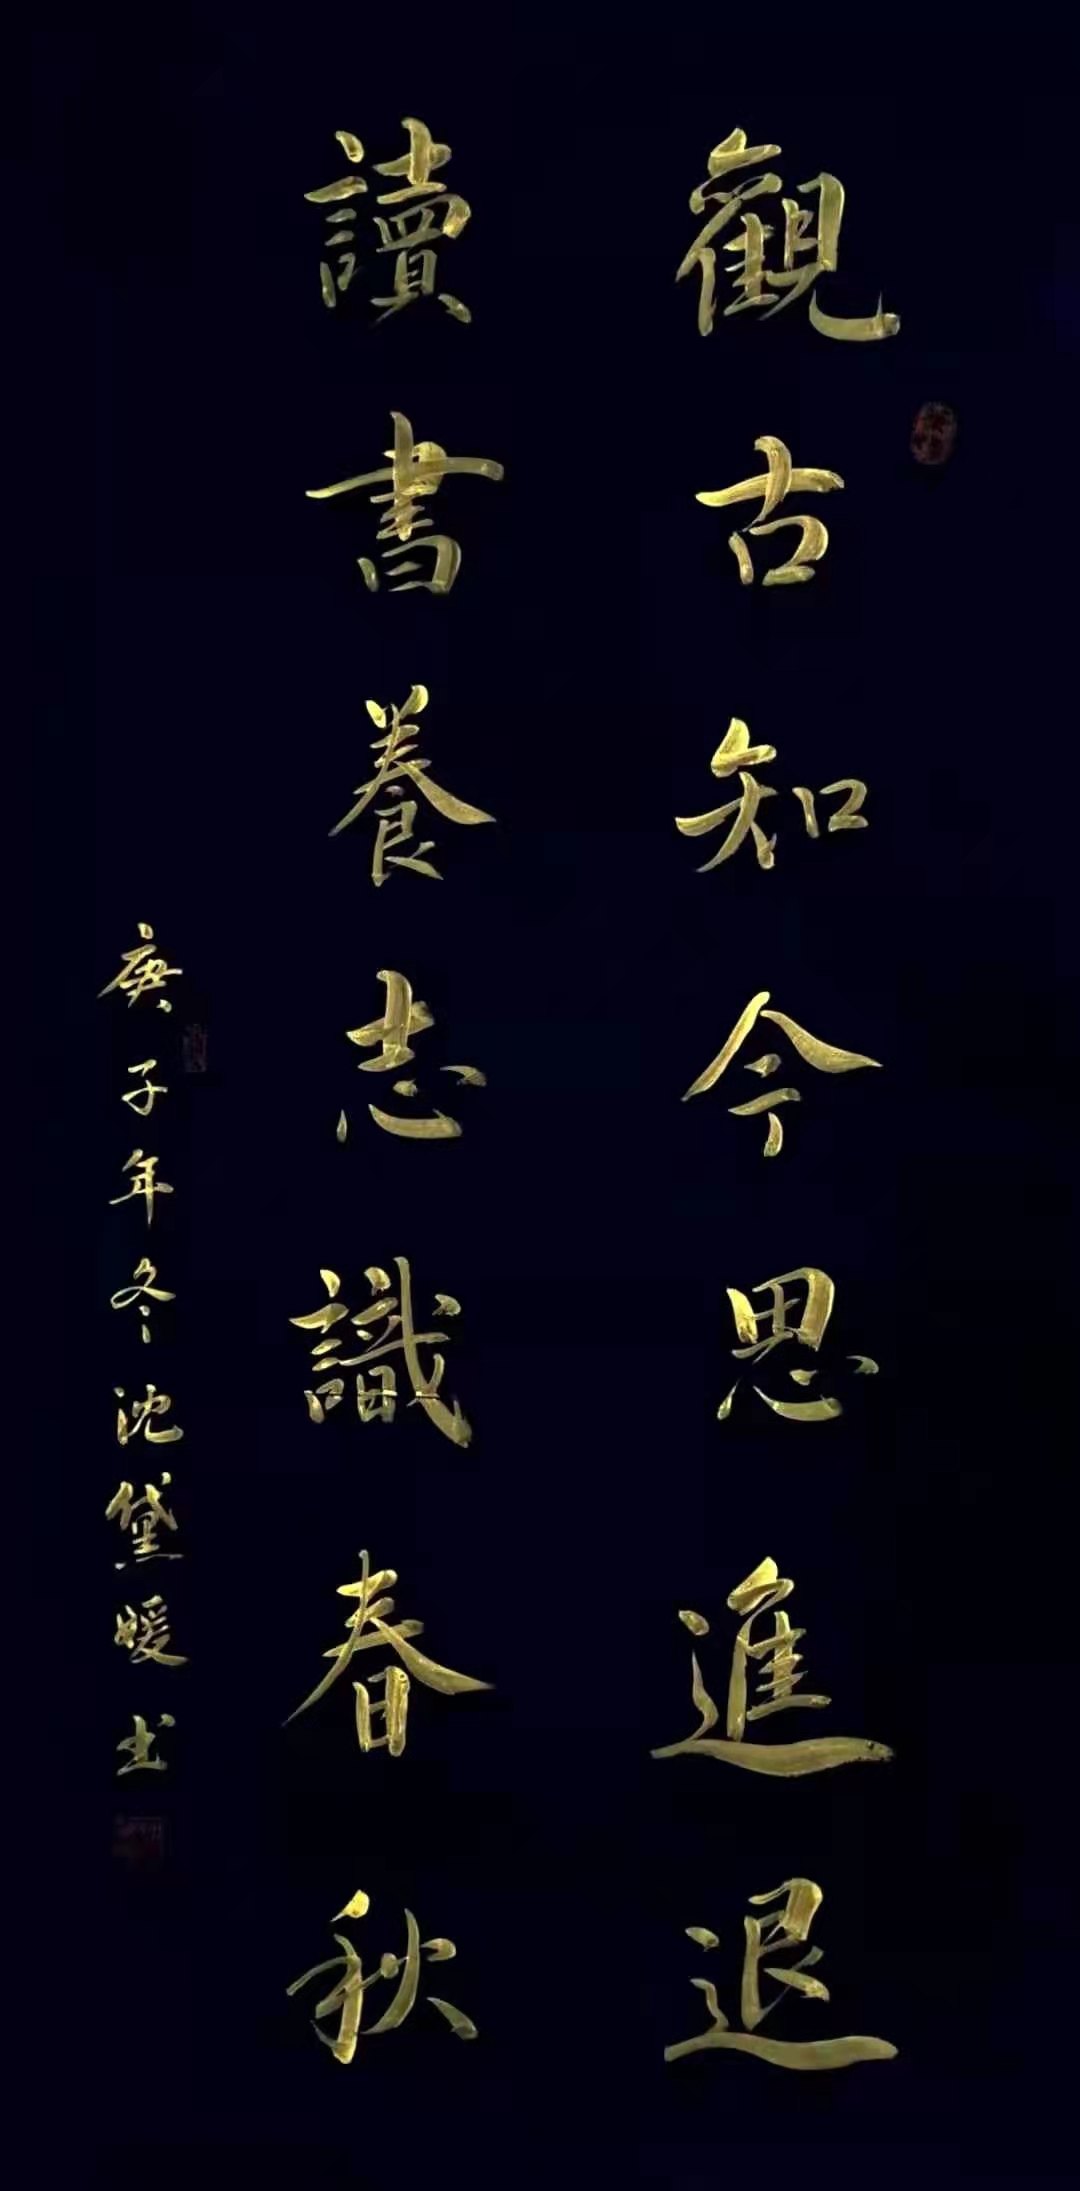 觀古知今思進退
讀書養志識春秋
庚子年冬沈黛媛书